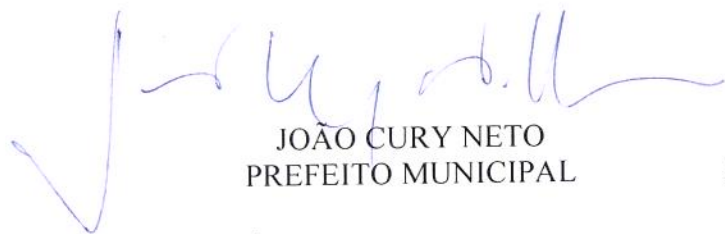 JOÃO CURY NETO
PREFEITO MUNICIPAL